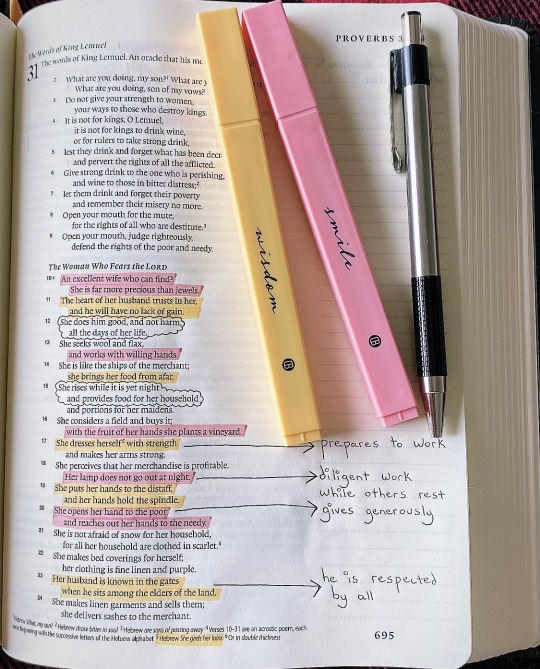 PROVERBS 3
The Words of King Lemuel
31 The words of King Lemuel. An oracle that his mo
2 What are you doing, my son?¹ What are y
What are you doing, son of my vows?
3 Do not give your strength to women,
your ways to those who destroy kings.
4 It is not for kings, O Lemuel,
it is not for kings to drink wine,
or for rulers to take strong drink,
5 lest they drink and forget what has been decr
and pervert the rights of all the afflicted.
6 Give strong drink to the one who is perishing,
and wine to those in bitter distress;²
7 let them drink and forget their poverty
and remember their misery no more.
8 Open your mouth for the mute,
for the rights of all who are destitute.³
9 Open your mouth, judge righteously,
defend the rights of the poor and needy.
The Woman Who Fears the LORD
10⁴ An excellent wife who can find?
She is far more precious than jewels.
11 The heart of her husband trusts in her,
and he will have no lack of gain.
12 She does him good, and not harm,
all the days of her life.
13 She seeks wool and flax,
and works with willing hands.
14 She is like the ships of the merchant;
she brings her food from afar.
15 She rises while it is yet night
and provides food for her household
and portions for her maidens.
16 She considers a field and buys it;
with the fruit of her hands she plants a vineyard.
17 She dresses herself⁵ with strength
and makes her arms strong.
18 She perceives that her merchandise is profitable.
Her lamp does not go out at night.
19 She puts her hands to the distaff,
and her hands hold the spindle.
20 She opens her hand to the poor
and reaches out her hands to the needy.
21 She is not afraid of snow for her household,
for all her household are clothed in scarlet.⁶
22 She makes bed coverings for herself;
her clothing is fine linen and purple.
23 Her husband is known in the gates
when he sits among the elders of the land.
24 She makes linen garments and sells them;
she delivers sashes to the merchant.
Hebrew What, my son? ² Hebrew those bitter in soul ³ Hebrew are sons of passing away ⁴ Verses 10–31 are an acrostic poem, each
beginning with the successive letters of the Hebrew alphabet ⁵ Hebrew She girds her loins ⁶ Or in double thickness
695
wisdom
smile
prepares to work
diligent work
while others rest
gives generously
he is respected
by all